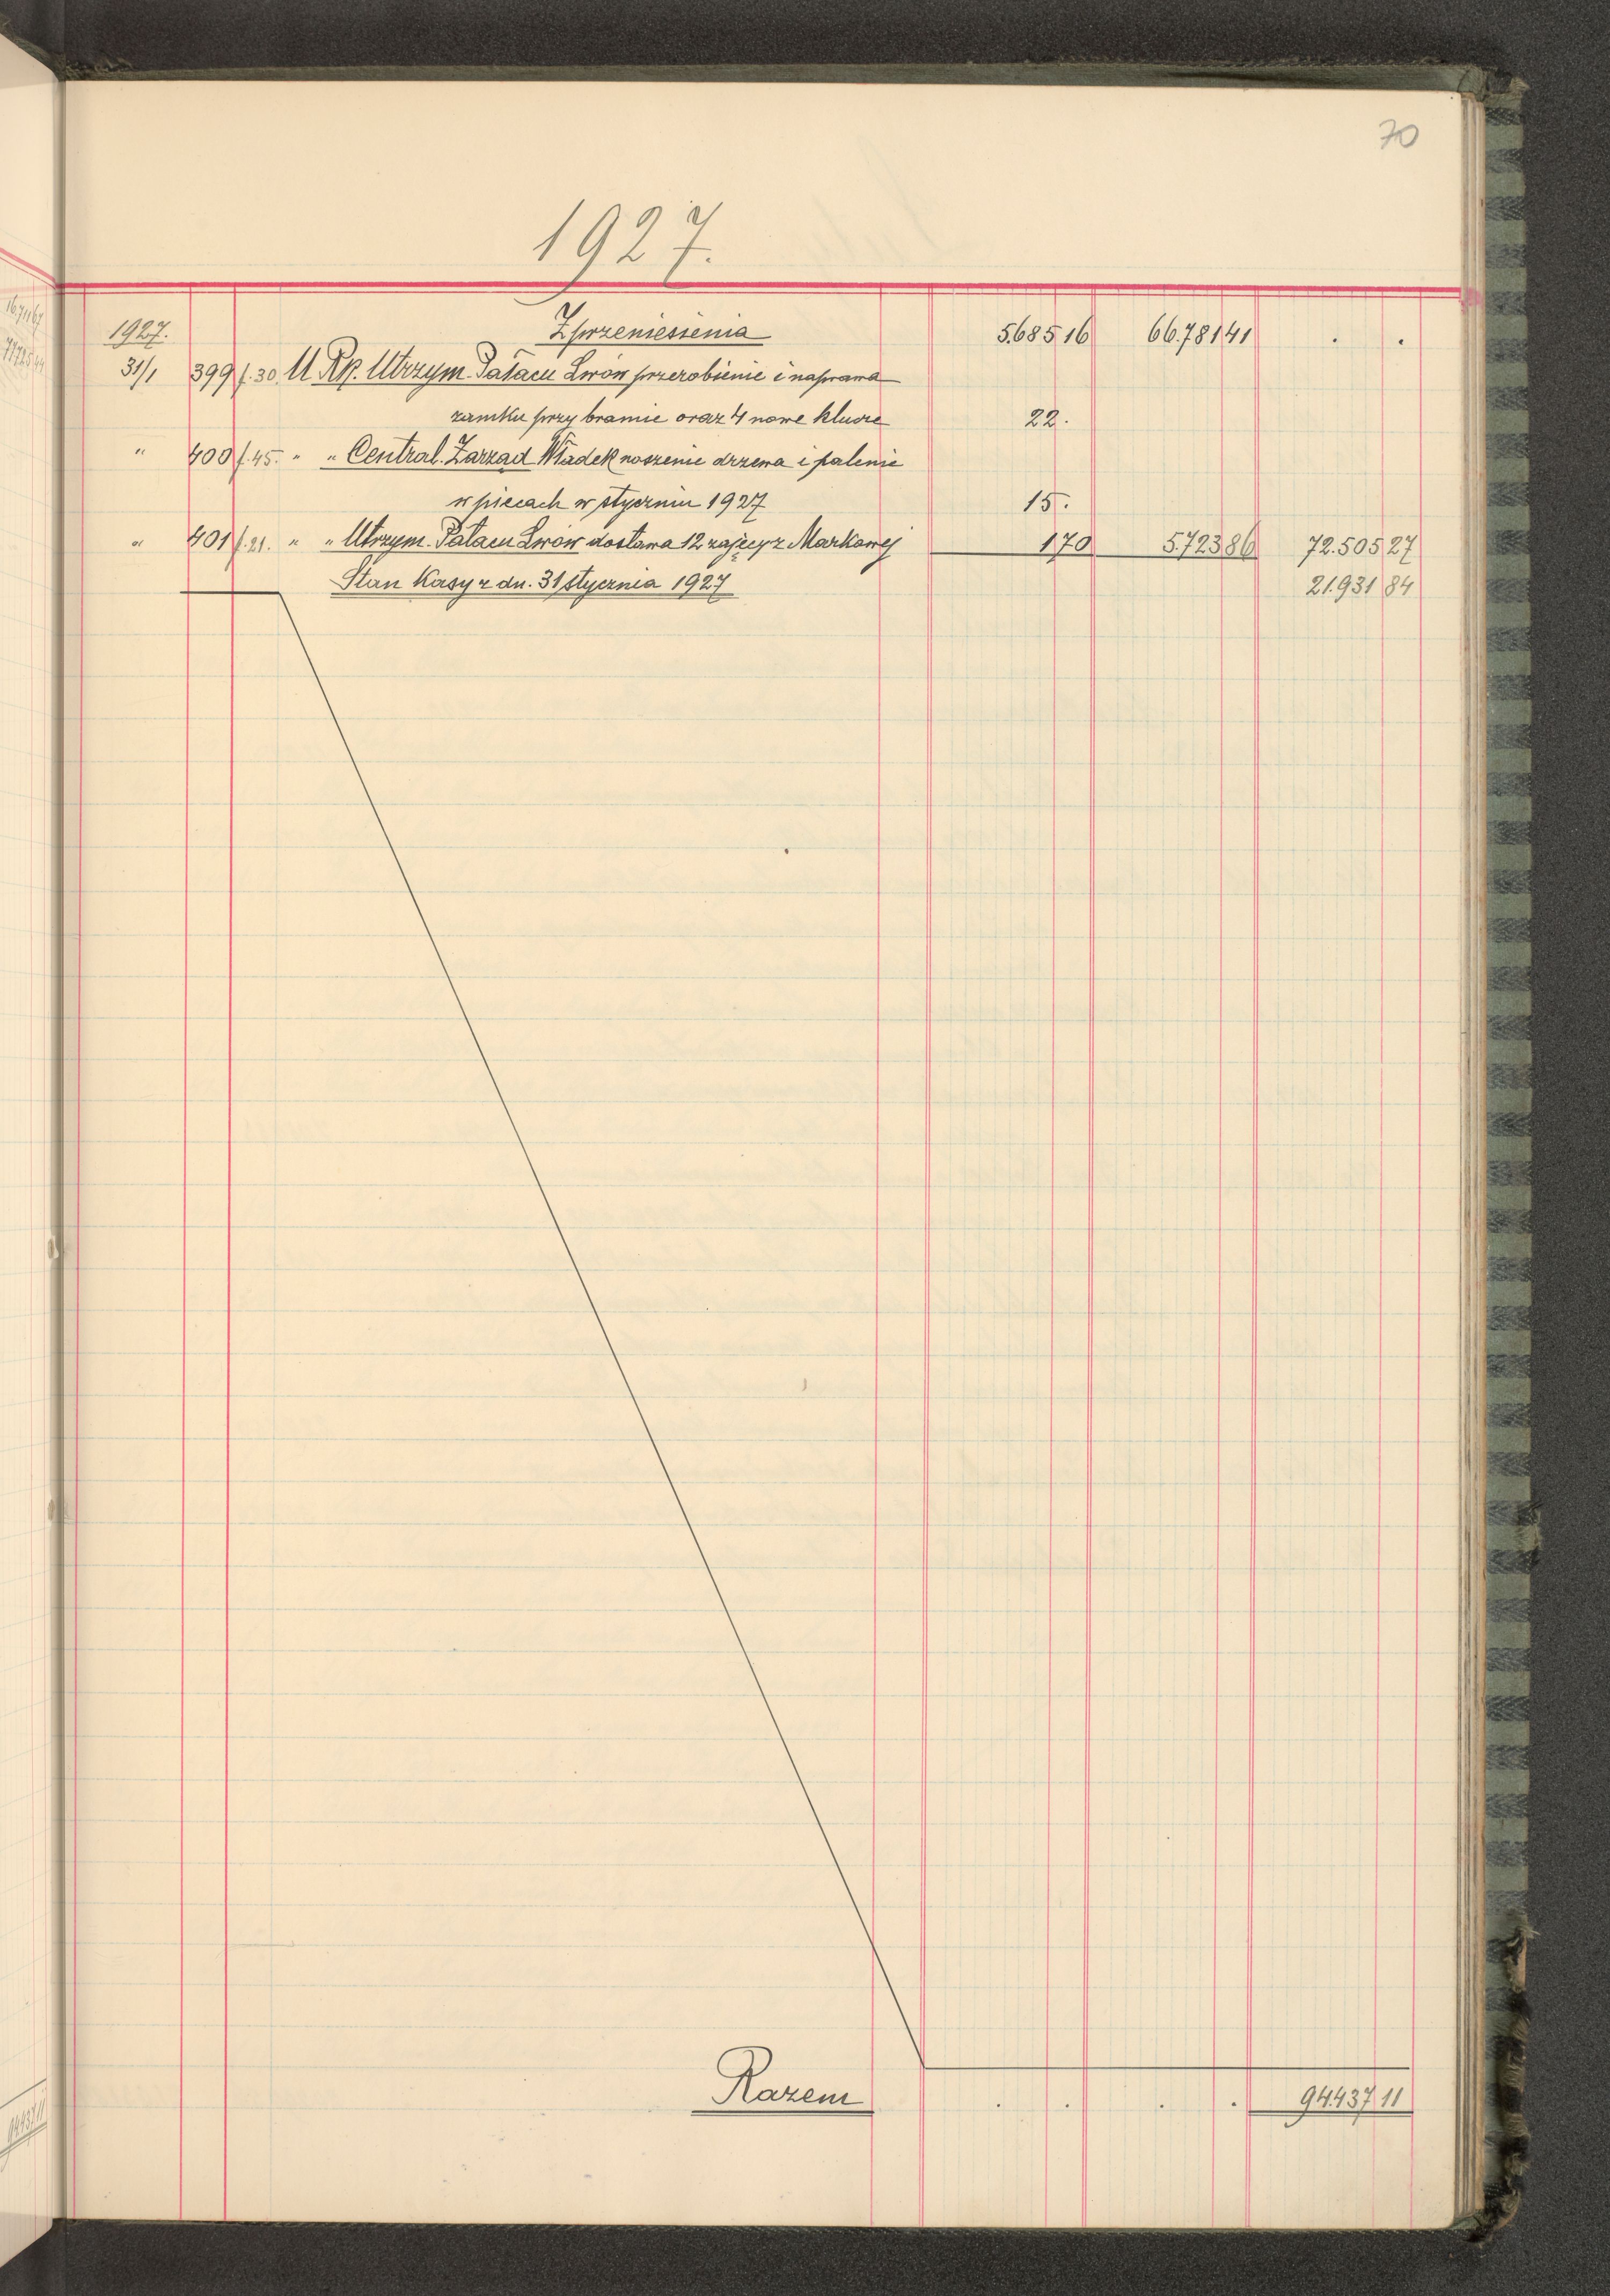 70
1927.
1927. Z przeniesienia 5.685 16 66.781 41 . .
31/1 399 f. 30. U Rp. Utrzym. Pałacu Lwów przerobienie i naprawa
zamku przy bramie oraz 4 nowe klucze 22 .
" 400 f. 45. " " Central. Zarząd Władek noszenie drzewa i palenie
w piecach w styczniu 1927 15 .
" 401 f. 21. " " Utrzym. Pałacu Lwów dostawa 12 zajęcy z Markowej 1 70 5.723 86 72.505 27
Stan Kasy z dn. 31 stycznia 1927 21.931 84
Razem . . . . 94.437 11